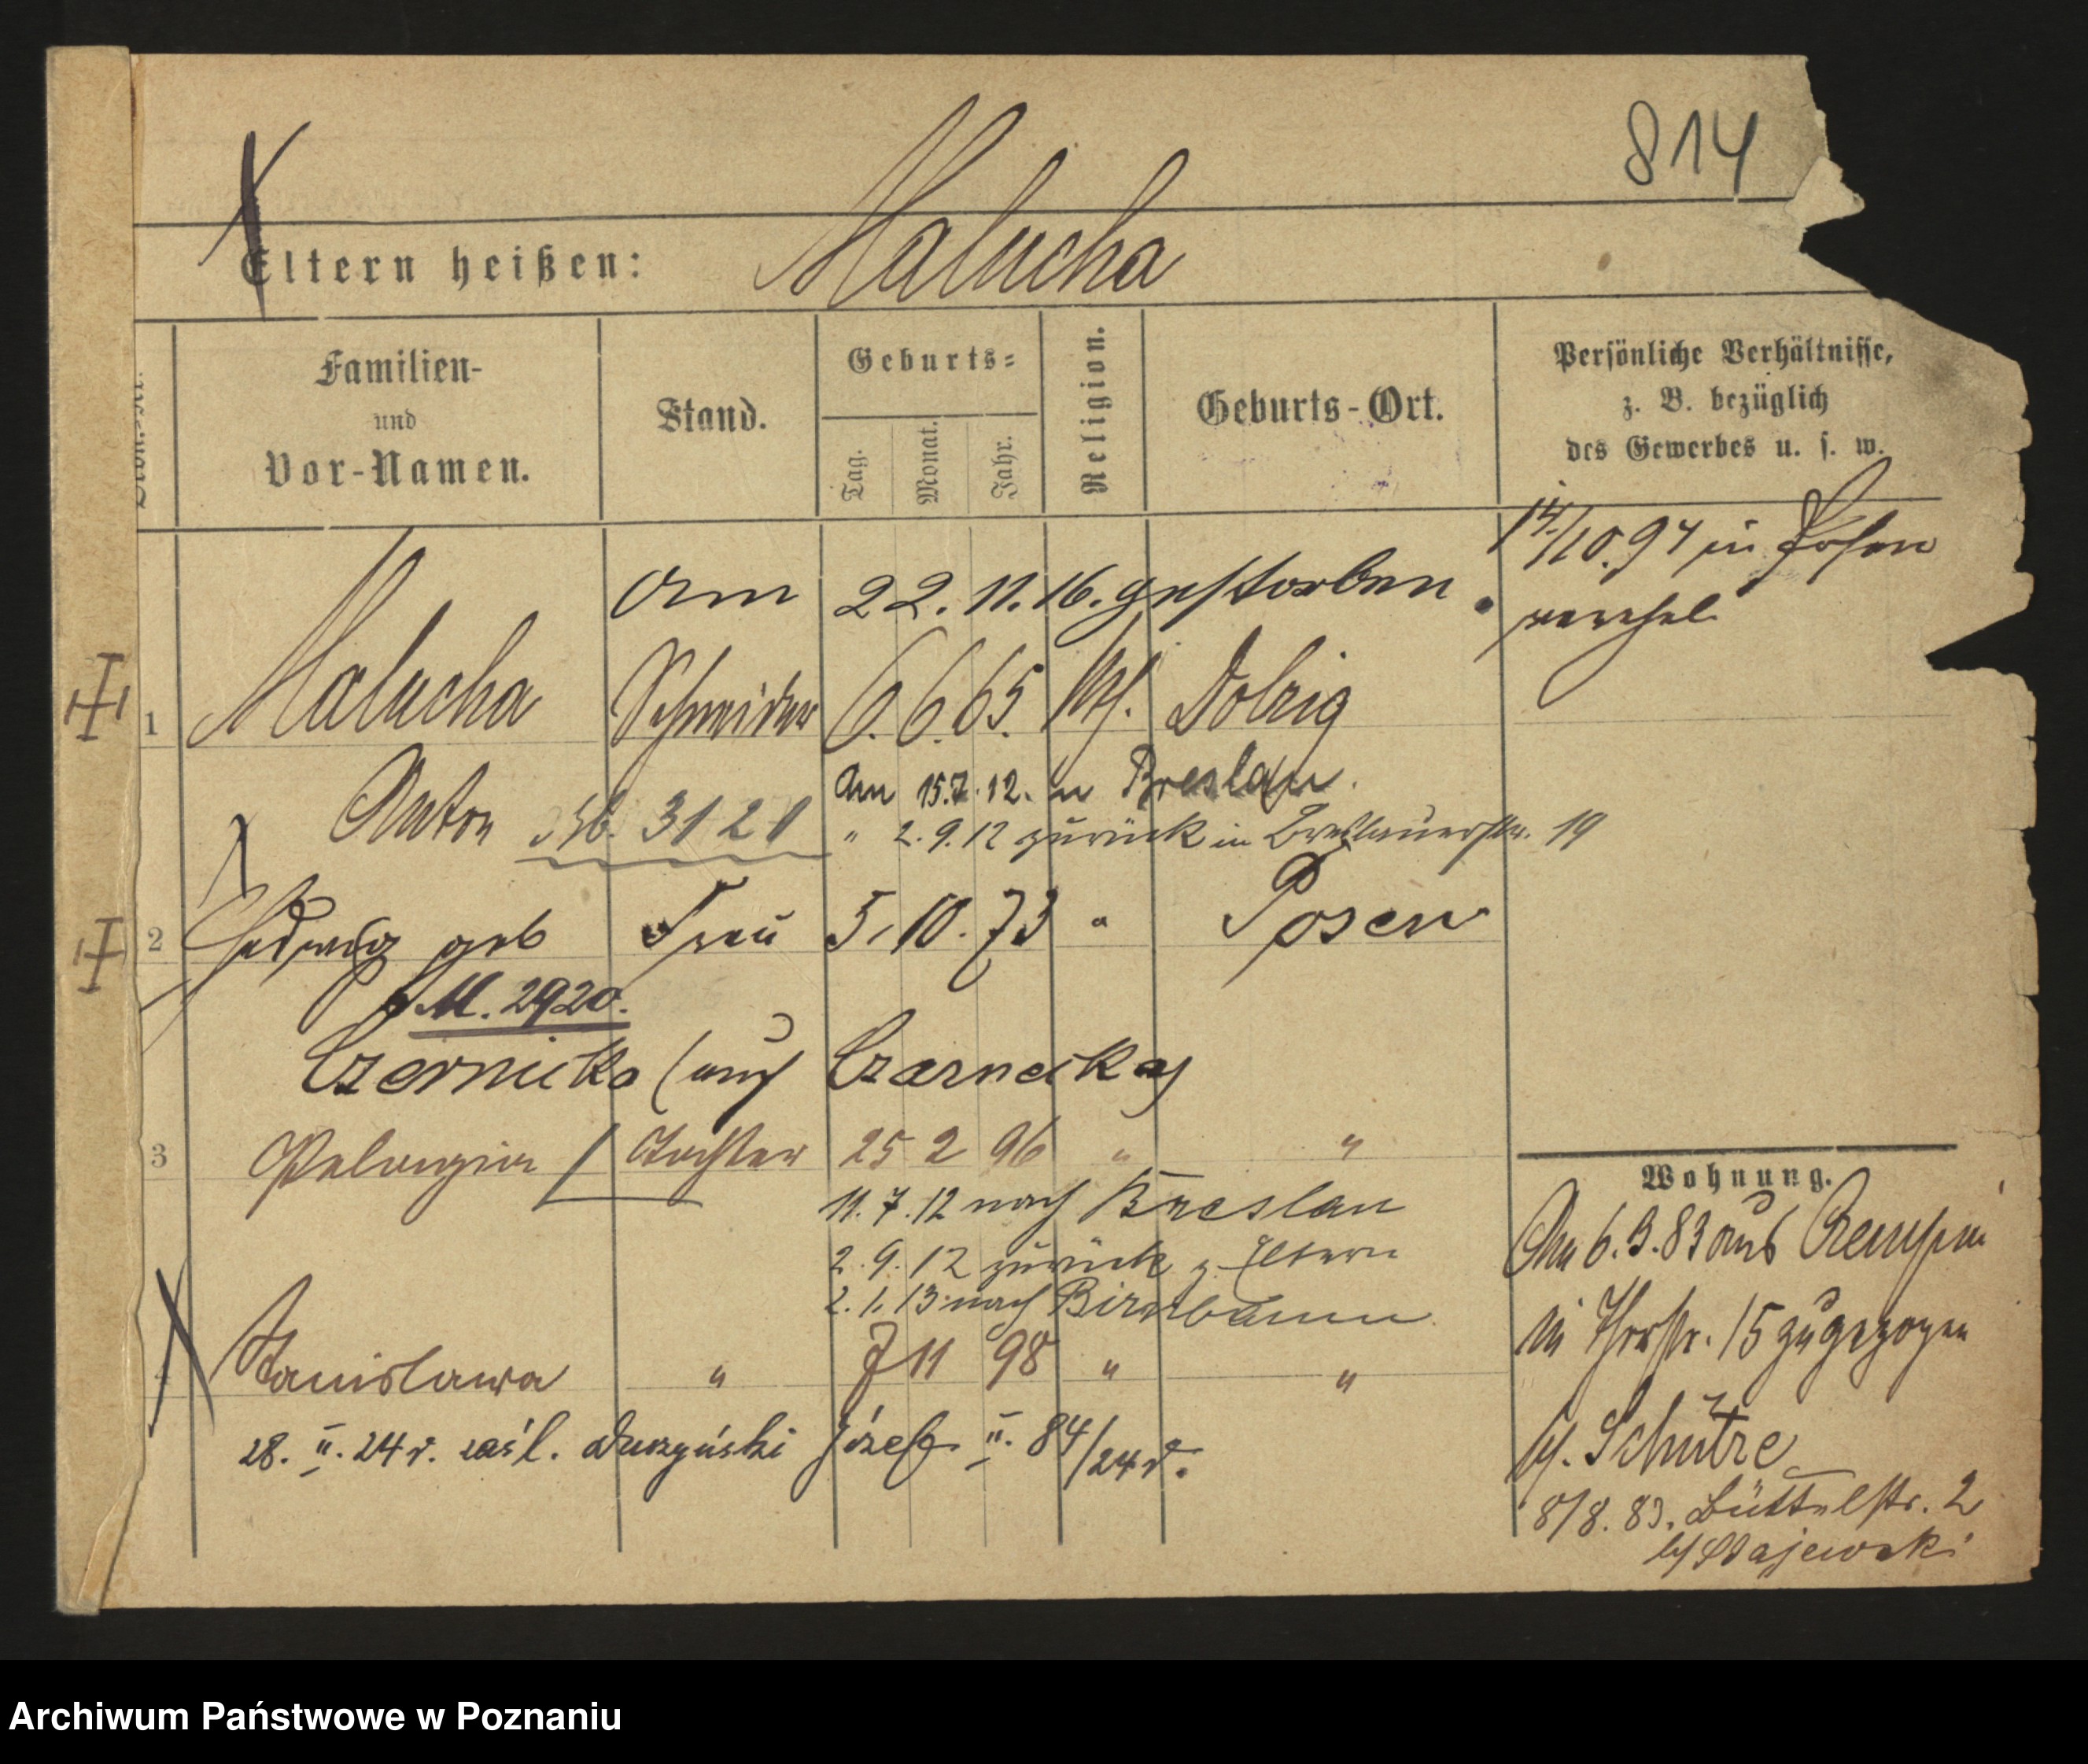 814
Eltern heißen: Malucha
Familien-
und
Vor-Namen.
Stand.
Geburts=
Tag.
Monat.
Jahr.
Religion.
Geburts-Ort.
Persönliche Verhältnisse,
z. B. bezüglich
des Gewerbes u. s. w.
14/10.94 in Posen
verehel
am 22. 11. 16. gestorben.
1 Malucha Schneider 6. 6. 65. kth. Dolzig
Anton Stb. 3121
Am 15.7.12. in Breslau.
" 2.9.12 zurück in Breslauerstr. 19
2 Hedwig geb Frau 5. 10. 73 " Posen
M. 2920.
Czernicka (auch Czarnecka)
3 Pelagia Tochter 25 2 96 " "
11. 7. 12 nach Breslau
2. 9. 12 zurück z. Eltern
2. 1. 13 nach Birnbaum
4 Stanislawa " 7 11 98 " "
28. II. 24 r. zaśl. Duszyński Józef II. 84/24 r.
Wohnung.
Am 6. 3. 83 aus Czempin
in Thorstr. 15 zugezogen
by. Schütze
8/8. 83. Büttelstr. 2
by Majewski
Archiwum Państwowe w Poznaniu